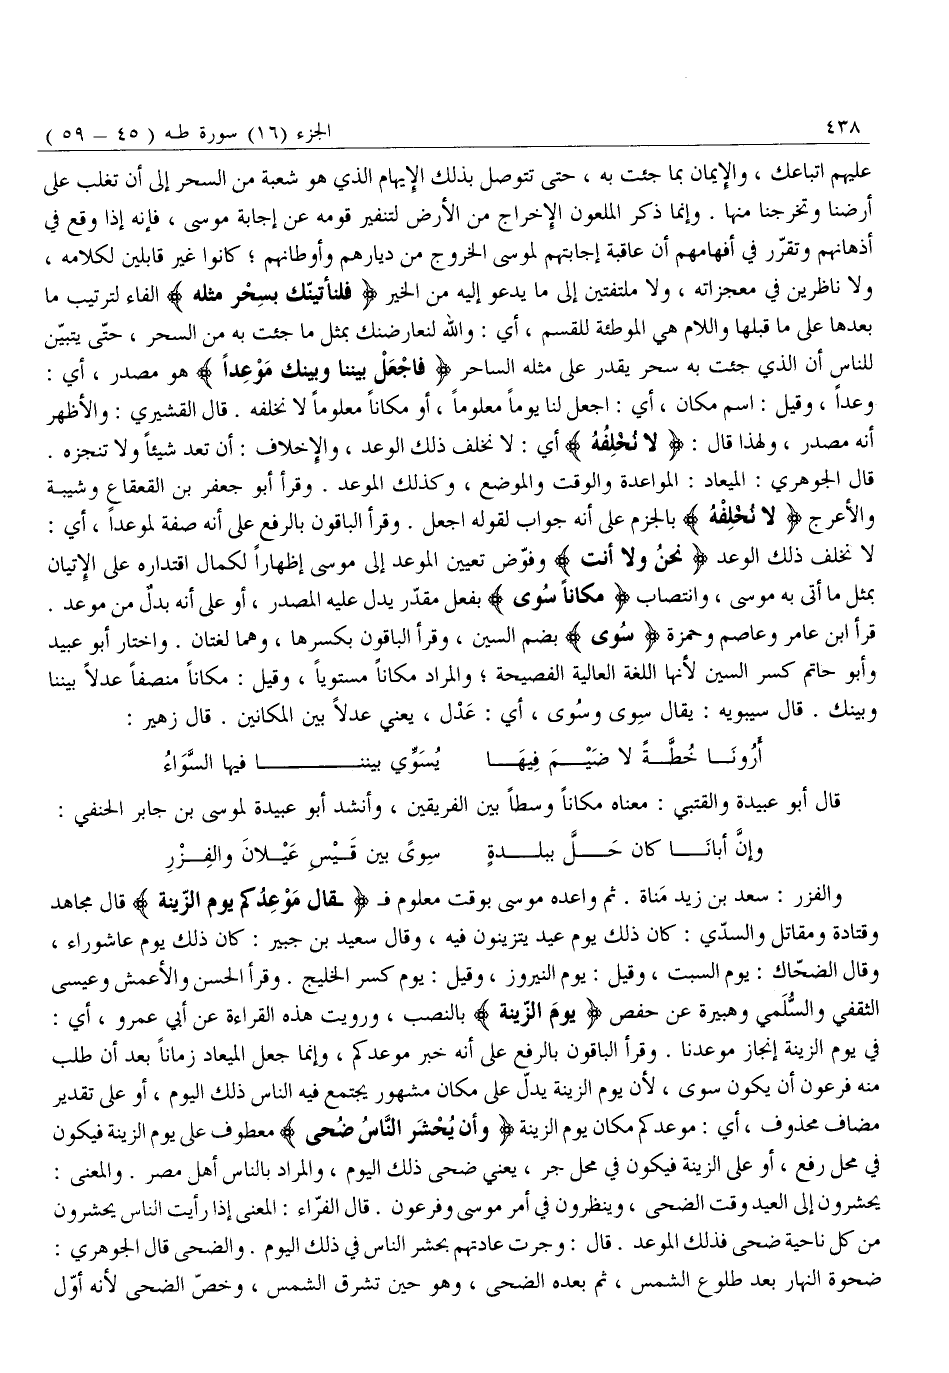 ٤٣٨
الجزء (١٦) سورة طـه ( ٤٥ – ٥٩ )
عليهم اتباعك ، والإيمان بما جئت به ، حتى تتوصل بذلك الإيهام الذي هو شعبة من السحر إلى أن تغلب على
أرضنا وتخرجنا منها . وإنما ذكر الملعون الإخراج من الأرض لتنفير قومه عن إجابة موسى ، فإنه إذا وقع في
أذهانهم وتقرّر في أفهامهم أن عاقبة إجابتهم لموسى الخروج من ديارهم وأوطانهم ؛ كانوا غير قابلين لكلامه ،
ولا ناظرين في معجزاته ، ولا ملتفتين إلى ما يدعو إليه من الخير ﴿ فلنأتينّك بسِحْر مثله ﴾ الفاء لترتيب ما
بعدها على ما قبلها واللام هي الموطئة للقسم ، أي : والله لنعارضنك بمثل ما جئت به من السحر ، حتّى يتبيّن
للناس أن الذي جئت به سحر يقدر على مثله الساحر ﴿ فاجْعَلْ بيننا وبينك مَوْعِداً ﴾ هو مصدر ، أي :
وعداً ، وقيل : اسم مكان ، أي : اجعل لنا يوماً معلوماً ، أو مكاناً معلوماً لا نخلفه . قال القشيري : والأظهر
أنه مصدر ، ولهذا قال : ﴿ لا نُخْلِفُهُ ﴾ أي : لا نخلف ذلك الوعد ، والإخلاف : أن تعد شيئاً ولا تنجزه .
قال الجوهري : الميعاد : المواعدة والوقت والموضع ، وكذلك الموعد . وقرأ أبو جعفر بن القعقاع وشيبـة
والأعرج ﴿ لا نُخْلِفْهُ ﴾ بالجزم على أنه جواب لقوله اجعل . وقرأ الباقون بالرفع على أنه صفة لموعداً ، أي :
لا نخلف ذلك الوعد ﴿ نحنُ ولا أنت ﴾ وفوّض تعيين الموعد إلى موسى إظهاراً لكمال اقتداره على الإتيان
بمثل ما أتى به موسى ، وانتصاب ﴿ مكاناً سُوى ﴾ بفعل مقدّر يدل عليه المصدر ، أو على أنه بدلٌ من موعد .
قرأ ابن عامر وعاصم وحمزة ﴿ سُوى ﴾ بضم السين ، وقرأ الباقون بكسرها ، وهما لغتان . واختار أبو عبيد
وأبو حاتم كسر السين لأنها اللغة العالية الفصيحة ؛ والمراد مكاناً مستوياً ، وقيل : مكاناً منصفاً عدلاً بيننا
وبينك . قال سيبويه : يقال سِوى وسُوى ، أي : عَدْل ، يعني عدلاً بين المكانين . قال زهير :
أَرُونَــا خُطَّــةً لا ضَيْــمَ فِيهَـا يُسَوِّي بيننــــــــا فيها السَّوَاءُ
قال أبو عبيدة والقتبي : معناه مكاناً وسطاً بين الفريقين ، وأنشد أبو عبيدة لموسى بن جابر الحنفي :
وإنَّ أبانَــا كان حَــلَّ ببلــدةٍ سِوىً بين قَيْسِ عَيْلانَ والفِـزْرِ
والفزر : سعد بن زيد مَناة . ثم واعده موسى بوقت معلوم فـ ﴿ ـقال مَوْعِدُكم يوم الزّينة ﴾ قال مجاهد
وقتادة ومقاتل والسدّي : كان ذلك يوم عيد يتزينون فيه ، وقال سعيد بن جبير : كان ذلك يوم عاشوراء ،
وقال الضحّاك : يوم السبت ، وقيل : يوم النيروز ، وقيل : يوم كسر الخليج . وقرأ الحسن والأعمش وعيسى
الثقفي والسُّلَمي وهبيرة عن حفص ﴿ يومَ الزّينة ﴾ بالنصب ، ورويت هذه القراءة عن أبي عمرو ، أي :
في يوم الزينة إنجاز موعدنا . وقرأ الباقون بالرفع على أنه خبر موعدكم ، وإنما جعل الميعاد زماناً بعد أن طلب
منه فرعون أن يكون سوى ، لأن يوم الزينة يدلّ على مكان مشهور يجتمع فيه الناس ذلك اليوم ، أو على تقدير
مضاف محذوف ، أي : موعدكم مكان يوم الزينة ﴿ وأن يُحْشر النَّاسُ ضُحى ﴾ معطوف على يوم الزينة فيكون
في محل رفع ، أو على الزينة فيكون في محل جر ، يعني ضحى ذلك اليوم ، والمراد بالناس أهل مصر . والمعنى :
يحشرون إلى العيد وقت الضحى ، وينظرون في أمر موسى وفرعون . قال الفرّاء : المعنى إذا رأيت الناس يحشرون
من كل ناحية ضحى فذلك الموعد . قال : وجرت عادتهم بحشر الناس في ذلك اليوم . والضحى قال الجوهري :
ضحوة النهار بعد طلوع الشمس ، ثم بعده الضحى ، وهو حين تشرق الشمس ، وخصّ الضحى لأنه أوّل